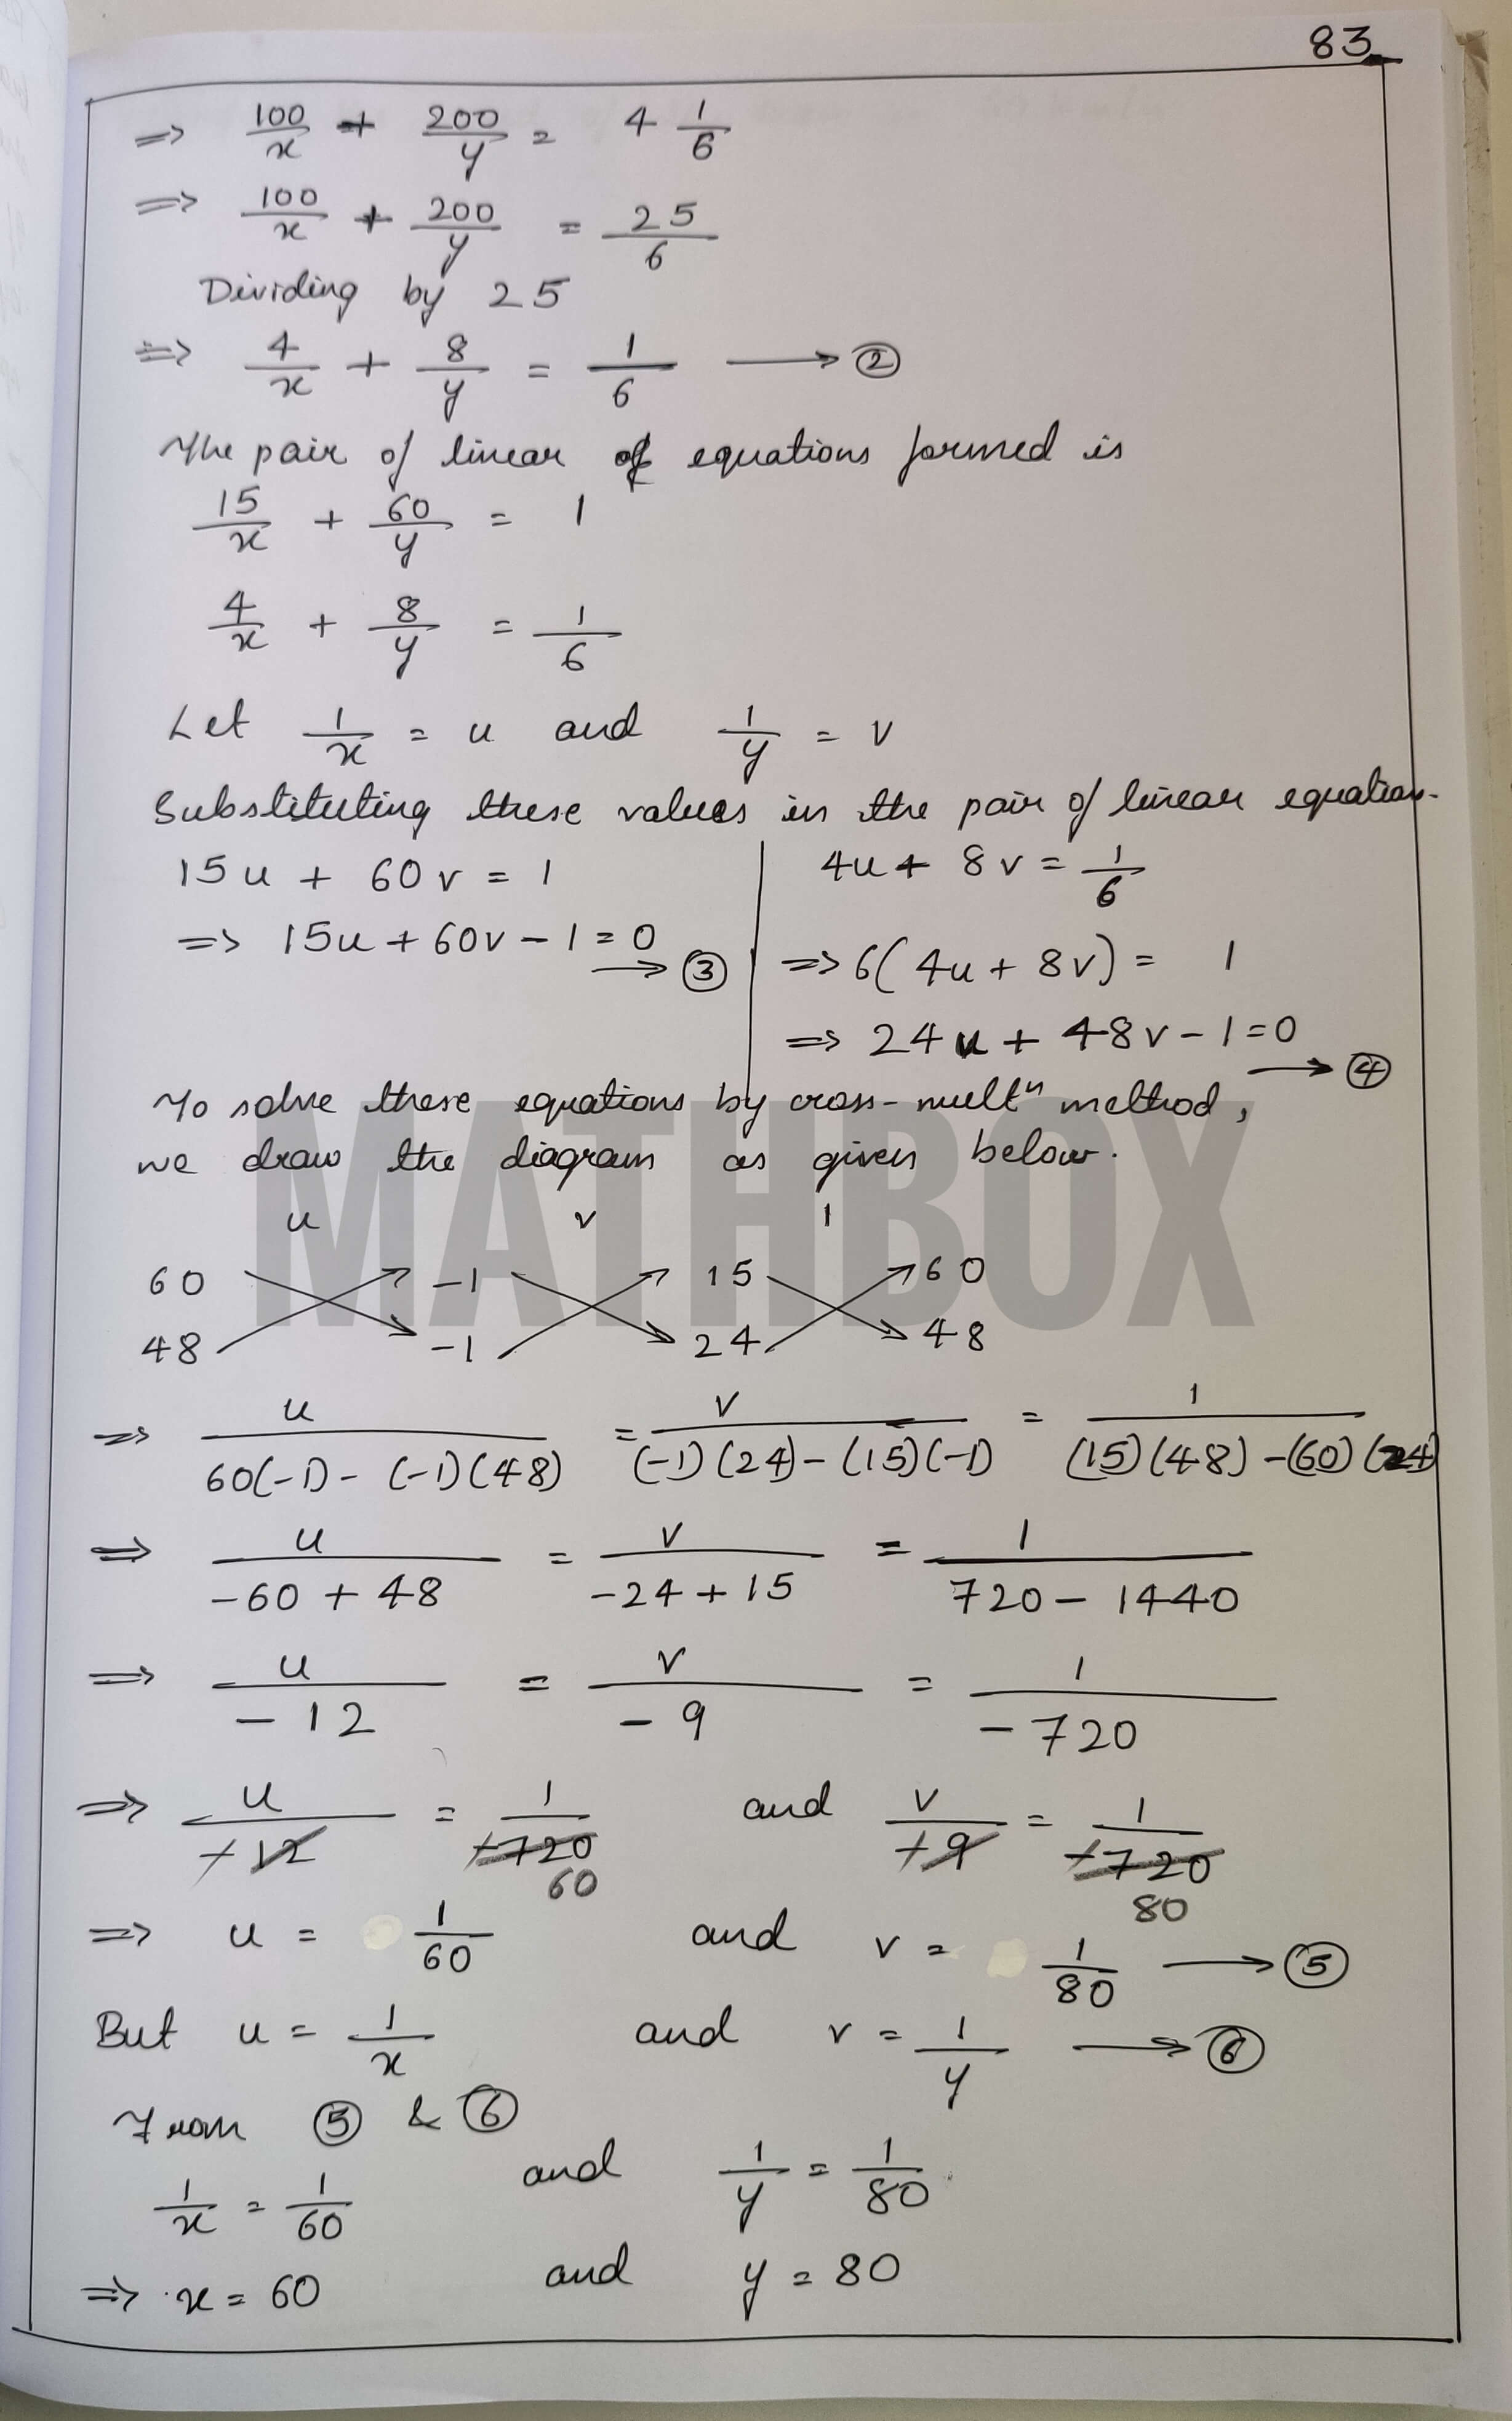 83
=> 100/x + 200/y = 4 1/6
=> 100/x + 200/y = 25/6
Dividing by 25
=> 4/x + 8/y = 1/6 → ②
The pair of linear of equations formed is
15/x + 60/y = 1
4/x + 8/y = 1/6
Let 1/x = u and 1/y = v
Substituting these values in the pair of linear equation.
15u + 60v = 1 | 4u + 8v = 1/6
=> 15u + 60v - 1 = 0 → ③ | => 6(4u + 8v) = 1
=> 24u + 48v - 1 = 0 → ④
To solve these equations by cross-multⁿ method,
we draw the diagram as given below.
MATHBOX
u v 1
60 -1 15 60
48 -1 24 48
=> u/60(-1) - (-1)(48) = v/(-1)(24) - (15)(-1) = 1/(15)(48) - (60)(24)
=> u/-60 + 48 = v/-24 + 15 = 1/720 - 1440
=> u/-12 = v/-9 = 1/-720
=> u/-12 = 1/-720 and v/-9 = 1/-720
60 80
=> u = 1/60 and v = 1/80 → ⑤
But u = 1/x and v = 1/y → ⑥
From ⑤ & ⑥
1/x = 1/60 and 1/y = 1/80
=> x = 60 and y = 80